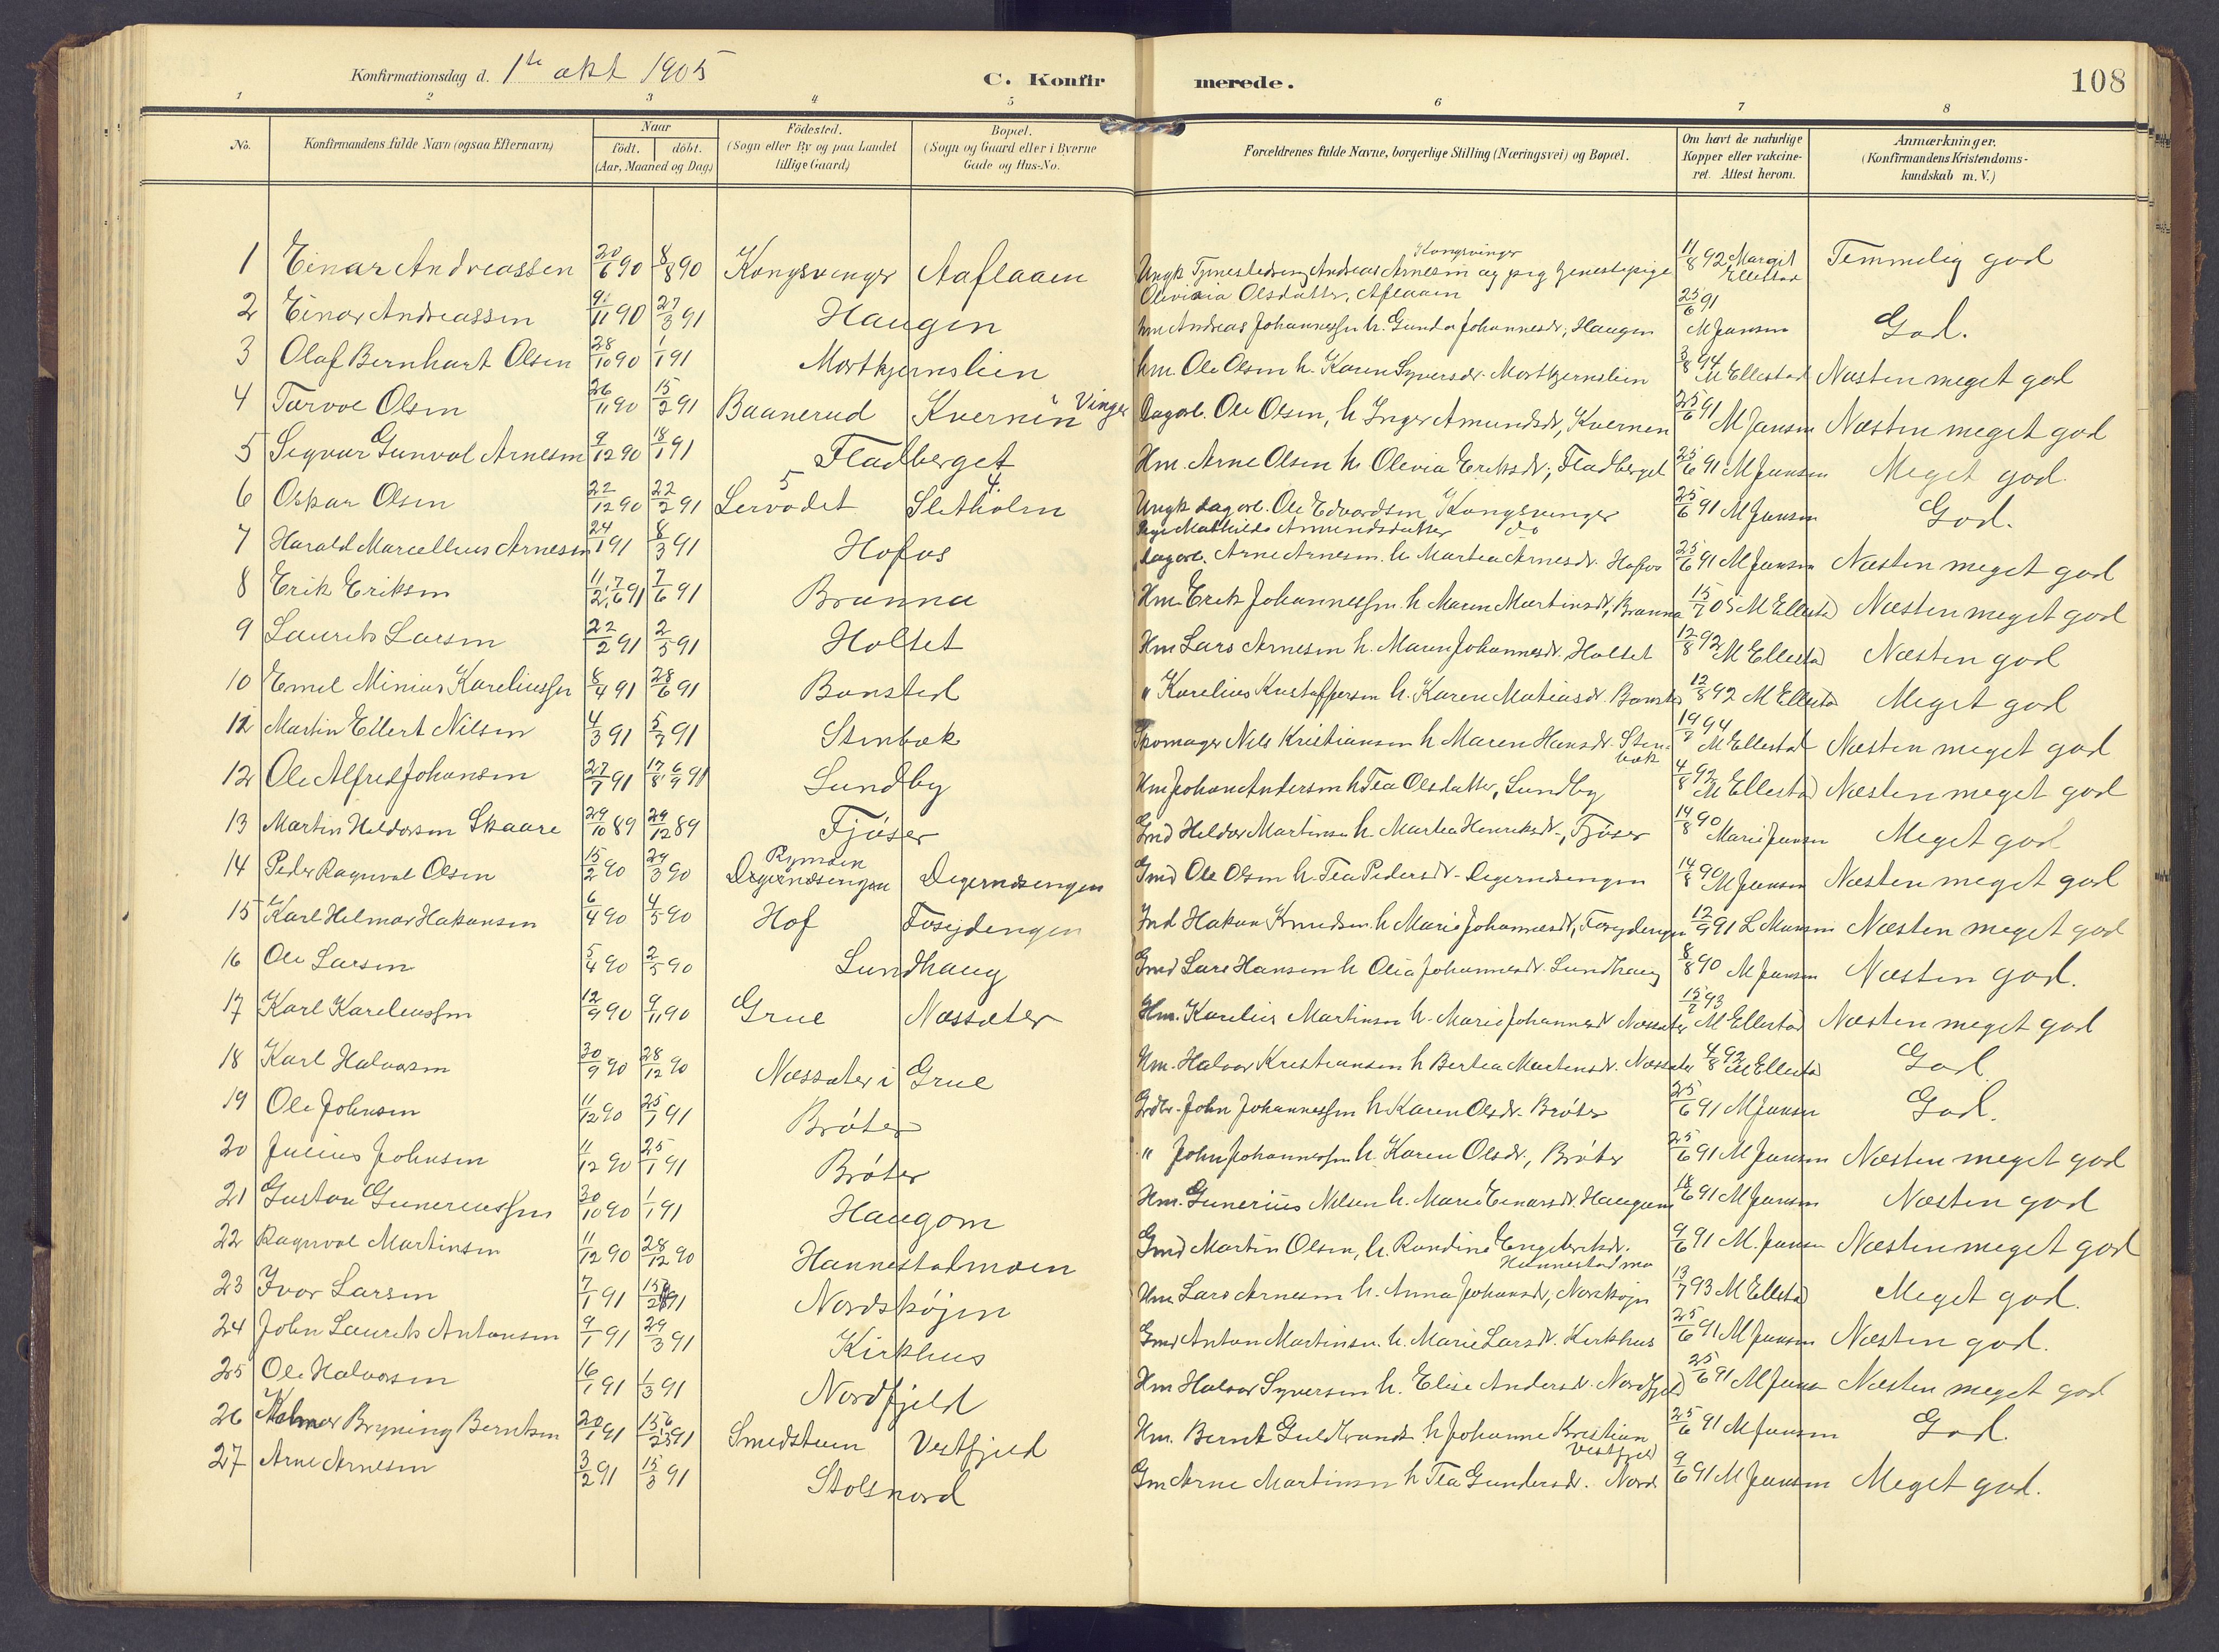 Konfirmationsdag d. 1te okt 1905 C. Konfir merede. 108
1 2 3 4 5 6 7 8
No. Konfirmandens fulde Navn (ogsaa Efternavn) Naar födt. döbt. (Aar, Maaned og Dag) Födested. (Sogn eller By og paa Landet tillige Gaard) Bopæl. (Sogn og Gaard eller i Byerne Gade og Hus-No. Forældrenes fulde Navne, borgerlige Stilling (Næringsvei) og Bopæl. Om havt de naturlige Kopper eller vakcineret. Attest herom. Anmærkninger. (Konfirmandens Kristendomskundskab m. V.)
1 Einar Andreassen 20/6 90 8/8 90 Kongsvinger Aaflaaen Ungk Andreas Arnesen Kongsvinger og pige Olsdatter, Aflaaen 11/8 92 Margit Ellestad Temmelig god
2 Einar Andreassen 9/11 90 27/3 91 Haugen hm Andreas Johannessen h. Gunda Johannesdr, Haugen 25/6 91 M Jansen God.
3 Olaf Bernhart Olsen 28/10 90 1/1 91 Mortkjernslien hm. Ole Olsen h. Karen Syversdr. Mortkjernslien 3/8 94 M Ellestad Næsten meget god
4 Tarvol Olsen 26/11 90 15/2 91 Baanerud Kvernen Vinger Dagarb. Ole Olsen, h Inger Amundsdr, Kvernen 25/6 91 M Jansen Næsten meget god
5 Sigvar Gunval Arnesen 9/12 90 18/1 91 Fladberget Hm. Arne Olsen h. Olevia Eriksdr, Fladberget 25/6 91 M Jansen Meget god.
6 Oskar Olsen 22/12 90 22/2 91 5 Sletholm 4. Ungk dagarb. Ole Edvardsen Kongsvinger Pige Mathilde Amundsdatter do 25/6 91 M Jansen God.
7 Harald Marcellius Arnesen 24/1 91 8/3 91 Hofos dagarb. Arne Arnesen h. Martea Arnesdr. Hofos 25/6 91 M Jansen Næsten meget god
8 Erik Eriksen 11/2 91 7/6 91 Branna Hm Erik Johannessen h Maren Martinsdr, Branna 15/7 05 M Ellestad Næsten meget god
9 Laurits Larsen 22/2 91 2/5 91 Holtet Hm Lars Arnesen h. Maren Johannesdr. Holtet 12/8 92 M Ellestad Næsten god
10 Emil Minius Kareliussen 8/4 91 28/6 91 Bansted " Karelius Kustaffersen h. Karen Matiasdr. 12/8 92 M Ellestad Meget god
11 Martin Ellert Nilsen 4/3 91 5/7 91 Stenbæk Skomager Nils Kristiansen h Maren Hansdr. Stenbæk 19/7 94 M Ellestad Næsten meget god
12 Ole Alfred Johansen 27/7 91 17/8, 6/9 91 Lundby Hm Johan Andersen h Tea Olsdatter, Lundby 4/8 92 M Ellestad Næsten meget god
13 Martin Heldorsen Skaare 29/10 89 29/12 89 Fjøser Gmd Heldor Martinsen h. Martea Henriksdr, Fjøser 14/8 90 Marie Jansen Meget god
14 Peder Ragnval Olsen 15/2 90 29/3 90 Rymoen Degernæsengen Degernæsengen Gmd Ole Olsen h. Tea Pedersdr. Degernæsengen 14/8 90 M Jansen Næsten meget god
15 Karl Hilmar Hakansen 6/4 90 4/5 90 Hof Foseydengen Hakan Knudsen h Marie Johannesdr, 12/9 91 Næsten meget god
16 Ole Larsen 5/4 90 2/5 90 Lundhaug Gmd Lars Hansen h Olia Johannesdr. Lundhaug 8/8 90 M Jansen Næsten god.
17 Karl Kareliussen 12/9 90 9/11 90 Grue Næssæter Hm. Karelius Martinsen h. Marie Johannesdr Næssæter 15/7 93 M Ellestad Næsten meget god
18 Karl Halvorsen 30/9 90 28/12 90 Næssæter i Grue Hm. Halvor Kristiansen h Bertea Martinsdr. Næssæter 4/8 92 M Ellestad God
19 Ole Johnsen 11/12 90 25/1 91 Brøter Grdbr. John Johannessen h Karen Olsdr. Brøter 25/6 91 M Jansen God.
20 Julius Johnsen 11/12 90 25/1 91 Brøter " John Johannessen h. Karen Olsdr., Brøter 25/6 91 M Jansen Næsten meget god
21 Gustav Gunerussen 30/10 90 1/1 91 Haugom Hm. Gunerius Nilsen h. Marie Einarsdr. Haugom 18/6 91 M Jansen Næsten god
22 Ragnval Martinsen 11/12 90 28/12 90 Hannestadmoen Gmd Martin Olsen, h. Randine Engebretsdr. Hannestadmo 9/6 91 M. Jansen Næsten meget god
23 Ivar Larsen 7/1 91 15/2 91 Nordskøjen Hm Lars Arnesen h. Anna Johansdr, Norskøjn 13/7 93 M Ellestad Meget god.
24 John Laurits Antonsen 9/1 91 29/3 91 Kirkhus Gmd Anton Martinsen h. Marie Larsdr. Kirkhus 25/6 91 M Jansen Næsten god.
25 Ole Halvorsen 16/1 91 1/3 91 Nordfjeld Hm Halvor Syversen h. Elise Andersdr. Nordfjeld 25/6 91 M Jansen Næsten meget god
26 Bryning Berntsen 20/1 91 91 Smedstuen Vestfjeld Hm. Bernt Guldbrands. h Johanne Kristian Vestfjeld 25/6 91 M Jansen God
27 Arne Arnesen 3/2 91 15/3 91 Stolsnord Gm Arne Martinsen h Tea Gundersdr. Nord 9/6 91 M Jansen Meget god.